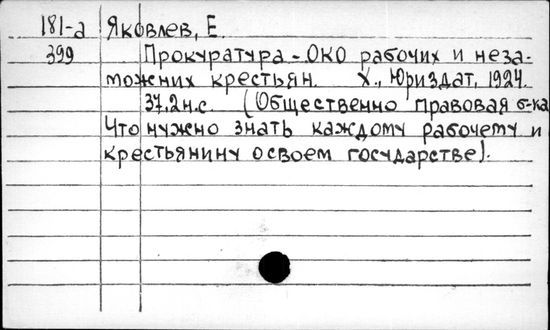 181-а Яковлев, Е.
399 Прокуратура - ОКО рабочих и неза-
можних крестьян. Х., Юриздат, 1924.
37,2н.с. (Общественно правовая б-ка
Что нужно знать каждому рабочему и
крестьянину о своем государстве).